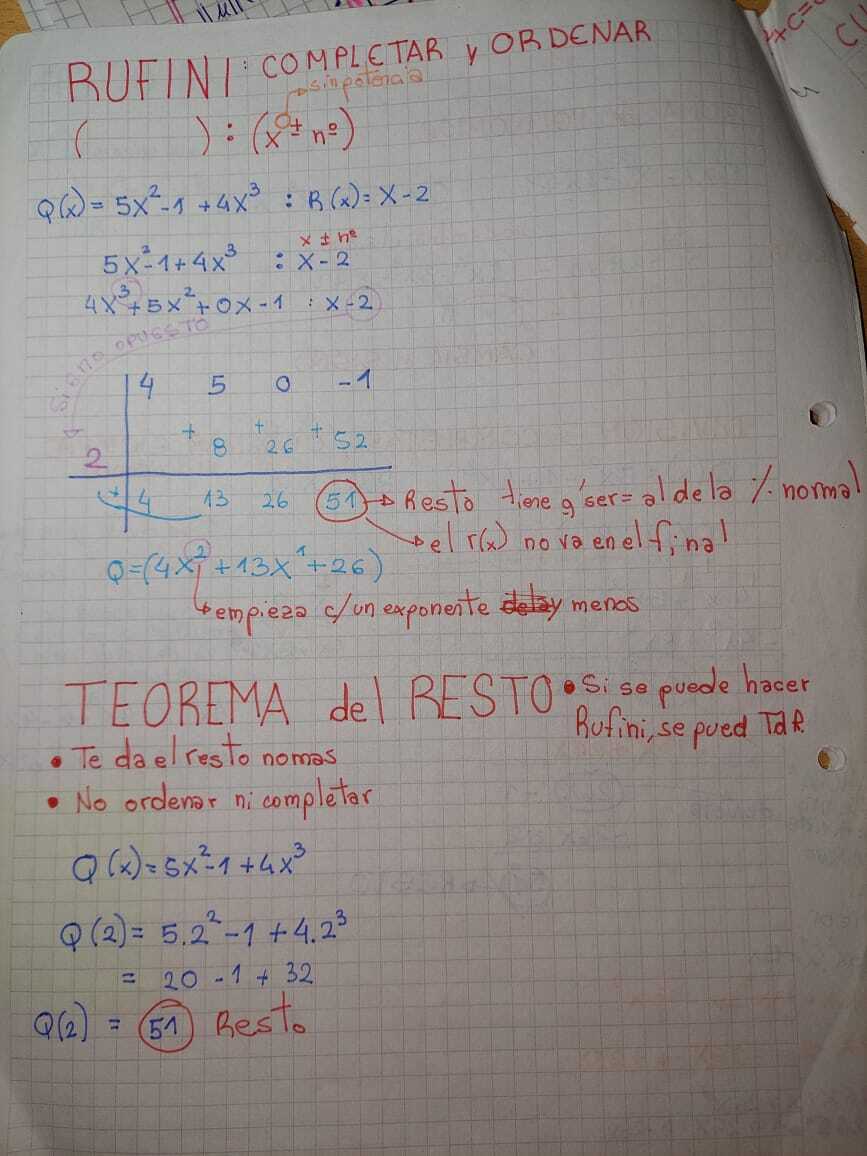 RUFINI: COMPLETAR y ORDENAR
sin potencia
( ) : (x ± nº)
Q(x) = 5x² - 1 + 4x³ : R(x) = x - 2
x ± nº
5x² - 1 + 4x³ : x - 2
4x³ + 5x² + 0x - 1 : x - 2
SIGNO OPUESTO
4 5 0 -1
+ 8 + 26 + 52
2
+ 4 13 26 51 → Resto tiene q' ser = al de la % normal
→ el r(x) no va en el final
Q = (4x² + 13x¹ + 26)
→ empieza c/un exponente menos
TEOREMA del RESTO • Si se puede hacer
Rufini, se pued TdR.
• Te da el resto nomas
• No ordenar ni completar
Q(x) = 5x² - 1 + 4x³
Q(2) = 5.2² - 1 + 4.2³
= 20 - 1 + 32
Q(2) = 51 Resto